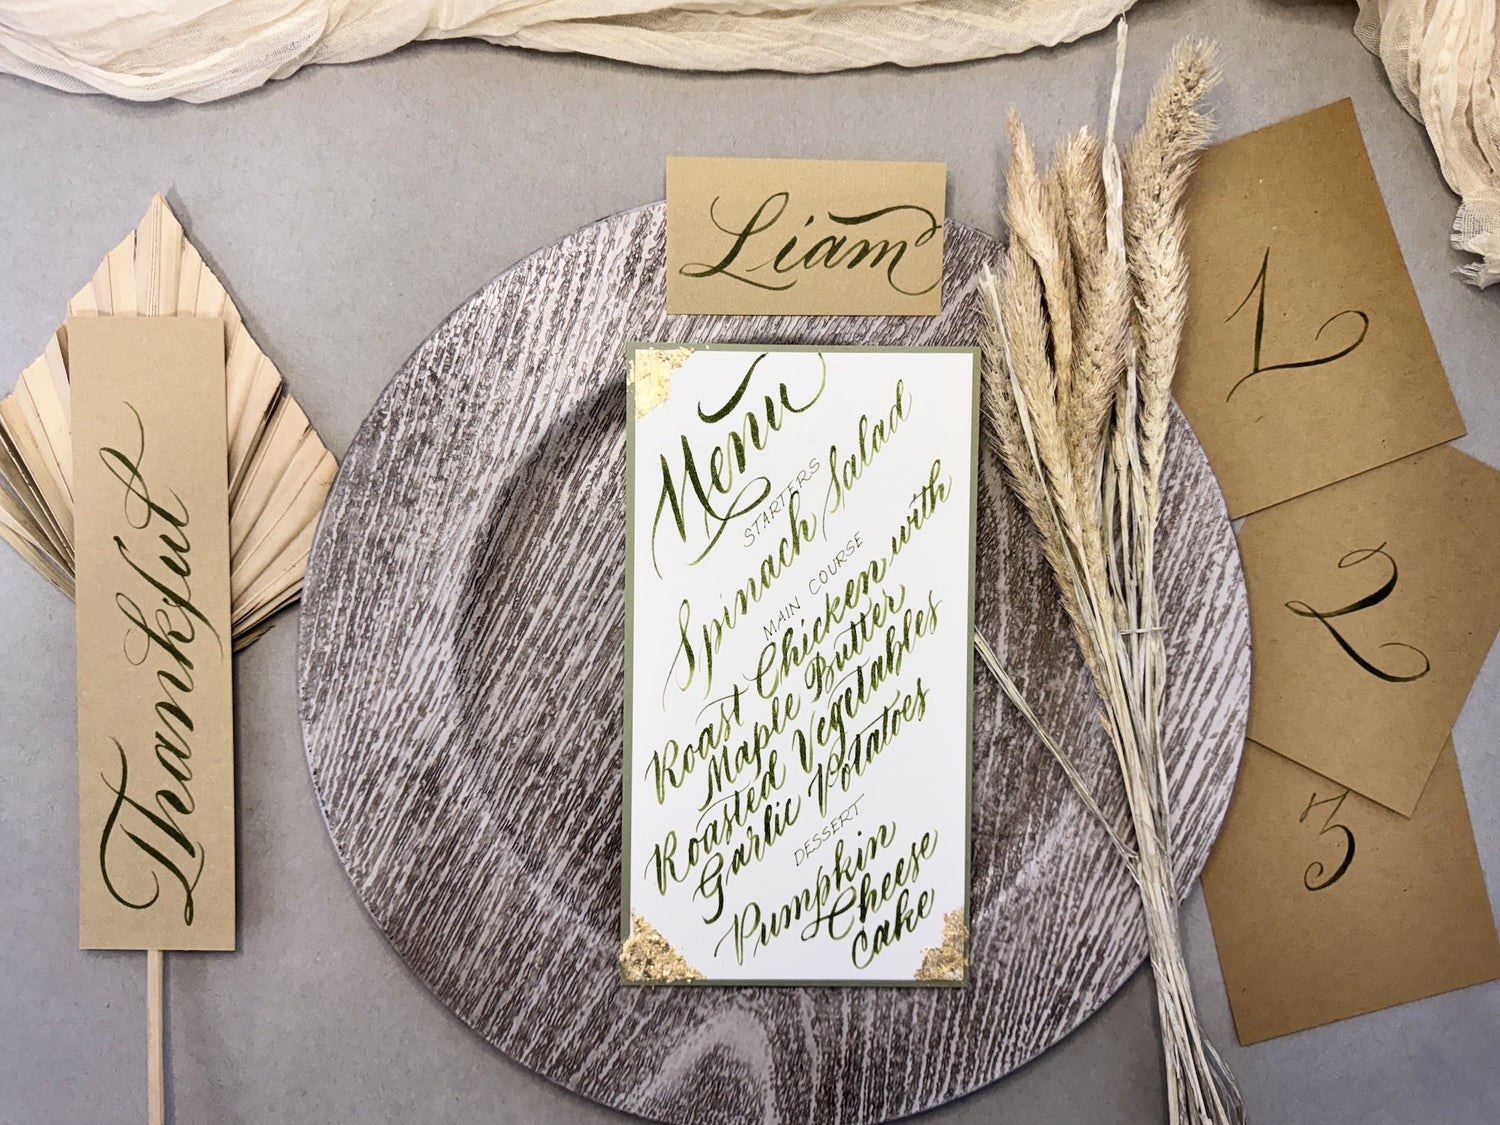 Thankful
Liam
Menu
STARTERS
Spinach Salad
MAIN COURSE
Roast Chicken with
Maple Butter
Roasted Vegetables
Garlic Potatoes
DESSERT
Pumpkin
Cheese
Cake
1
2
3